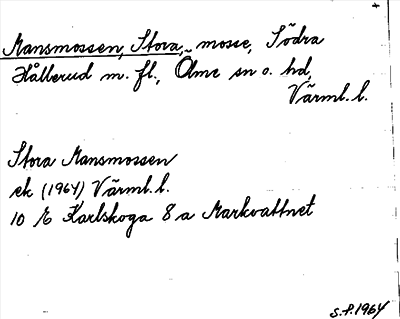 Mansmossen, Stora, mosse, Södra
Hållerud m. fl., Ölme sn o. hd,
Värml. l.
Stora Mansmossen
ek (1964) Värml. l.
10 E Karlskoga 8 a Markvattnet
S.P. 1964